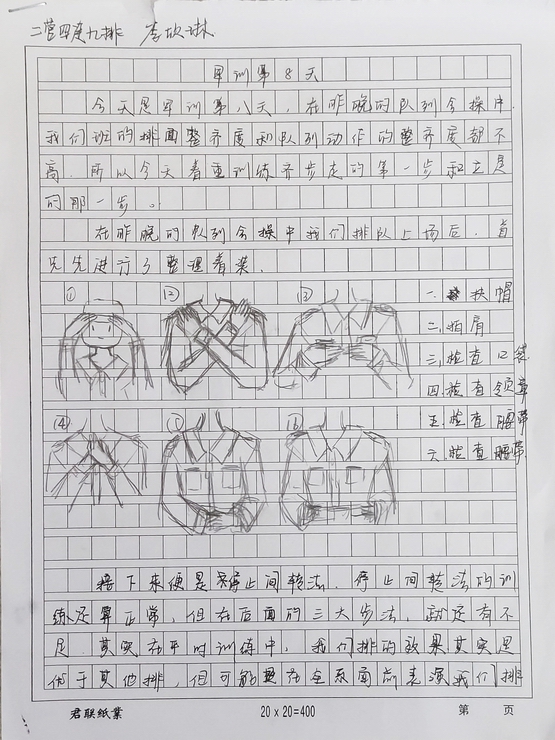 二营四连九排 李欣琳
军训第8天
今天是军训第八天，在昨晚的队列会操中，
我们班的排面整齐度和队列动作的整齐度都不
高，所以今天着重训练齐步走的第一步和立定
的那一步。
在昨晚的队列会操中我们排队上场后，首
先先进行了整理着装，
① ② ③
一、扶帽
二、拍肩
三、检查口袋
四、检查领章
④ ⑤ ⑥
五、检查腰带
六、检查腰带
接下来便是停止间转法，停止间转法的训
练还算正常，但在后面的三大步法，就还有不
足，其实在平时训练中，我们排的效果其实是
优于其他排，但可能是在全系面前表演我们排
君联纸业
20×20=400
第 页